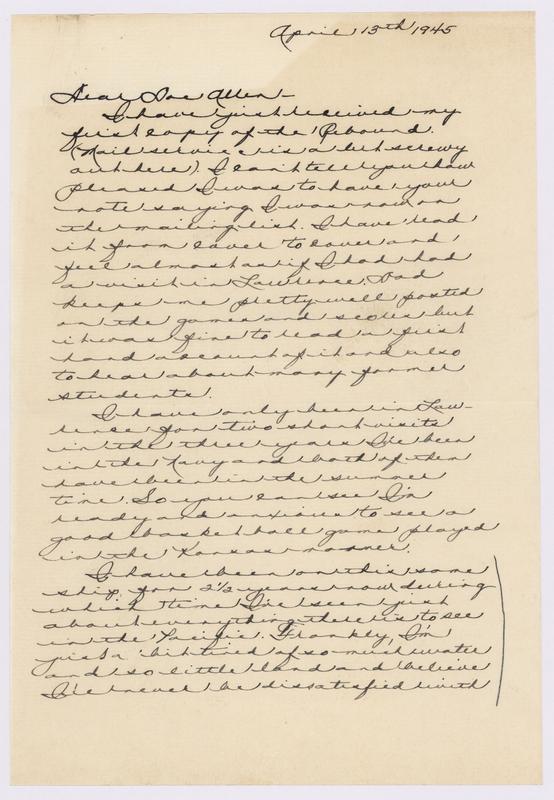 April 13th 1945
Dear Doc Allen -
I have just received my
first copy of the Rebound.
(Mail service is a bit screwy
out here). I can't tell you how
pleased I was to have your
note saying I was now on
the mailing list. I have read
it from cover to cover and
feel almost as if I had had
a visit in Lawrence. Dad
keeps me pretty well posted
on the games and scores but
it was fine to read a first
hand account of it and also
to hear about many former
students.
I have only been in Law-
rence for two short visits
in the three years I've been
in the Navy and both of them
have been in the summer
time. So you can see I'm
ready and anxious to see a
good basket ball game played
in the Kansas manner.
I have been on this same
ship for 2½ years now during
which time I've seen just
about everything there is to see
in the Pacific. Frankly, I'm
just a bit tired of so much water
and so little land and believe
I'll never be dissatisfied with